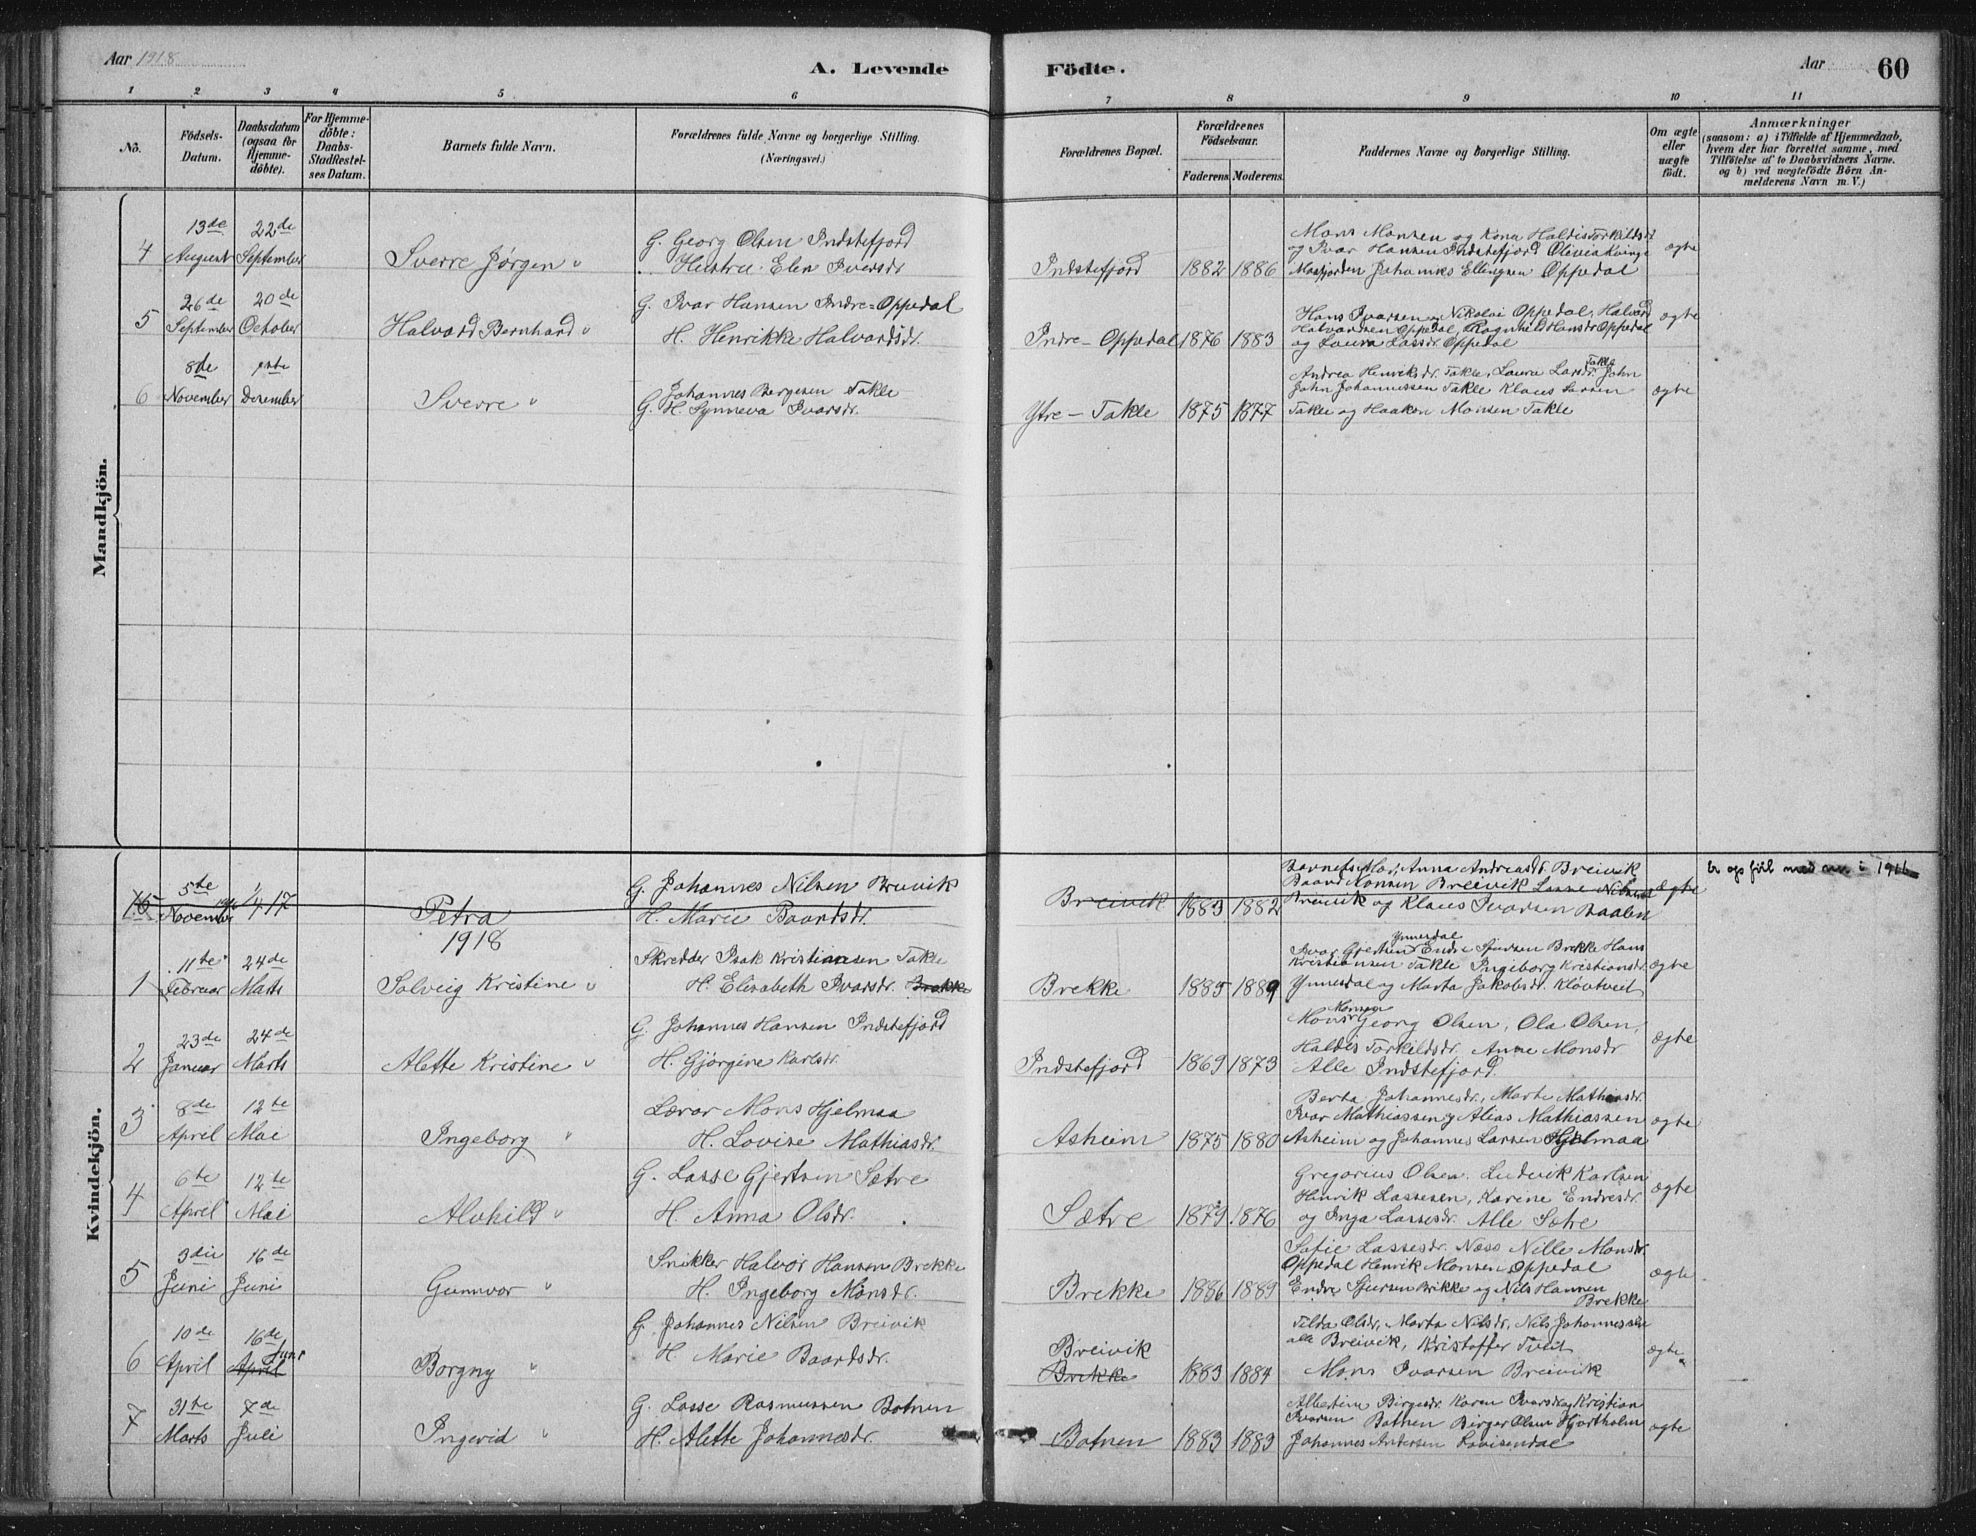 Aar 1918
A. Levende
Födte.
Aar
60
1 2 3 4 5 6 7 8 9 10 11
No.
Födsels-
Datum.
Daabsdatum
(ogsaa for
Hjemme-
döbte).
For Hjemme-
döbte:
Daabs-
Stadfæstel-
ses Datum.
Barnets fulde Navn.
Forældrenes fulde Navne og borgerlige Stilling.
(Næringsvei.)
Forældrenes Bopæl.
Forældrenes
Födselsaar.
Faderens Moderens
Faddernes Navne og borgerlige Stilling.
Om ægte
eller
uægte
födt.
Anmærkninger
(saasom: a) i Tilfælde af Hjemmedaab,
hvem der har forrettet samme, med
Tilföielse af to Daabsvidners Navne.
og b) ved uægtefödte Börn An-
melderens Navn m. V.)
Mandkjön.
4
13de
August
22de
September
Sverre Jørgen "
G. Georg Olsen Indstefjord
Hustru Elen Iversdr
Indstefjord
1882 1886
Mons Monsen og Kona Haldis Torkildsdr
og Ivar Hansen Indstefjord Olivia Kvinge
Masfjorden Johannes Ellingsen Oppedal
ægte
5
26de
September
20de
October
Halvard Bernhard "
G. Ivar Hansen Indre-Oppedal
H. Henrikke Halvardsdr.
Indre-Oppedal
1876 1883
Hans Ivarsen og Nikolai Oppedal, Halvard
Halvardsen Oppedal, Ragnhild Hansdr Oppedal
og Laura Lassdr. Oppedal
ægte
6
8de
November
1ste
December
Sverre "
Johannes Børgesen Takle
G. H. Synneva Ivarsdr.
Ytre-Takle
1875 1877
Andrea Henriksdr. Takle, Laura Larsdr. Takle John
John Johannessen Takle Klaus Larsen
Takle og Haakon Monsen Takle
ægte
Kvindekjön.
15
5te
November
1/4 17
Petra
G. Johannes Nilsen Breivik
H. Marie Baardsdr.
Breivik
1883 1882
Barnets Mor, Anna Andreasdr. Breivik
Baard Monsen Breivik Lasse Nilsen
Breivik og Klaus Ivarsen Baalen
ægte
er ogs ført med i 1916
1918
1
11te
Februar
24de
Marts
Solveig Kristine "
Skredder Isak Kristiansen Takle
H. Elisabeth Ivarsdr. Brekke
Brekke
1885 1889
Ivar Gjertsen Ynnesdal Endre Sjursen Brekke Hans
Kristiansen Takle Ingeborg Kristiansdr.
Ynnesdal og Marta Jakobsdr. Kløvtveit
ægte
2
23de
Januar
24de
Marts
Alette Kristine "
G. Johannes Hansen Indstefjord
H. Gjørgine Karlsdr.
Indstefjord
1869 1873
Mons Monsen Georg Olsen, Ola Olsen,
Haldis Torkildsdr. Anne Monsdr
Alle Indstefjord.
ægte
3
8de
April
12te
Mai
Ingeborg "
Lærar Mons Hjelmaa
H. Lovise Mathiasdr.
Asheim
1875 1880
Berta Johannesdr., Marte Mathiasdr.
Ivar Mathiassen og Alias Mathiassen
Asheim og Johannes Larsen Hjelmaa
ægte
4
6te
April
12te
Mai
Alvhild "
G. Lasse Gjertsen Sætre
H. Anna Olsdr.
Sætre
1879 1876
Gregorius Olsen. Ludvik Karlsen
Henrik Lassesen, Karine Endresdr.
og Inga Lassesdr. Alle Sætre
ægte
5
3die
Juni
16de
Juni
Gunnvor "
Snikker Halvor Hansen Brekke
H. Ingeborg Monsdr.
Brekke
1886 1889
Sofie Lassesdr. Næss Nille Monsdr.
Oppedal Henrik Monsen Oppedal
Endre Sjursen Brekke og Nils Hansen
Brekke
ægte
6
10de
April
16de
April Juni
Borgny "
G. Johannes Nilsen Breivik
H. Marie Baardsdr.
Breivik
Brekke
1883 1884
Tilda Olsdr, Marta Nilsdr, Nils Johannessen
alle Breivik, Kristoffer Tveit
Mons Ivarsen Breivik
ægte
7
31te
Marts
7de
Juli
Ingerid "
G. Lasse Rasmussen Botnen
H. Alette Johannesdr.
Botnen
1883 1883
Albertine Birgesdr. Karen Ivarsdr og Kristian
Ivarsen Botnen Birger Olsen Hjortholm
Johannes Andersen Lovisendal
ægte